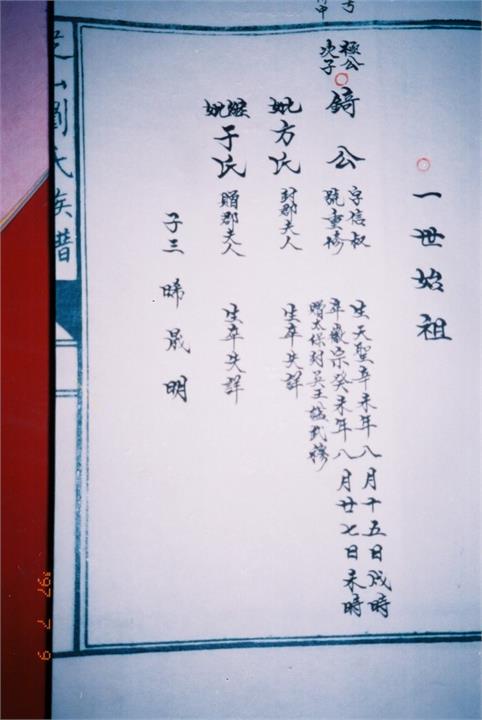 一世始祖
極公
次子
錡公
字信叔
號重
生天聖辛未年八月十五日戌時
卒徽宗癸未年八月廿七日未時
贈太保封吳王諡武穆
妣方氏
封郡夫人
生卒失詳
繼妣于氏
贈郡夫人
生卒失詳
子三 晞 晟 明
山劉氏族譜
'97 7 9